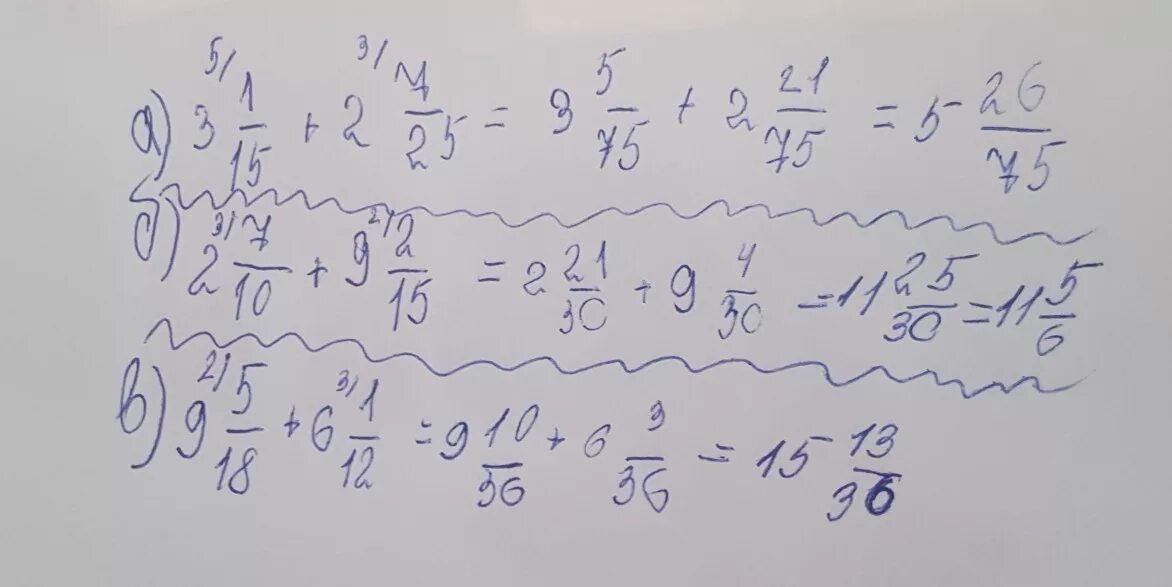 а) 3 ⁵/ 1/15 + 2 ³/ 7/25 = 3 5/75 + 2 21/75 = 5 26/75
б) 2 ³/ 7/10 + 9 ²/ 2/15 = 2 21/30 + 9 4/30 = 11 25/30 = 11 5/6
в) 9 ²/ 5/18 + 6 ³/ 1/12 = 9 10/36 + 6 3/36 = 15 13/36